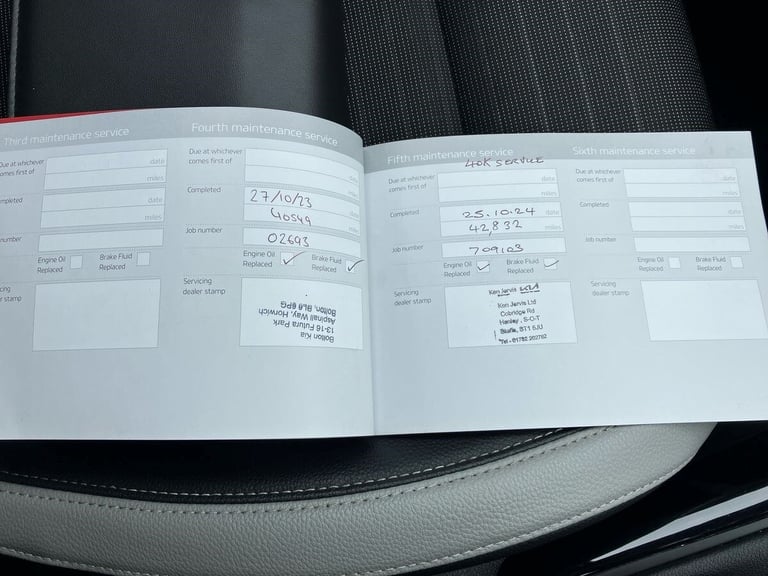 Third maintenance service
Due at whichever
comes first of
date
miles
mpleted
date
miles
number
Engine Oil
Replaced
Brake Fluid
Replaced
cing
er stamp
Fourth maintenance service
Due at whichever
comes first of
date
miles
Completed
27/10/23
date
40549
miles
Job number
02693
Engine Oil
Replaced
Brake Fluid
Replaced
Servicing
dealer stamp
Bolton Kia
13-16 Futura Park
Aspinall Way, Horwich
Bolton, BL6 6PG
Fifth maintenance service
40K SERVICE
Due at whichever
comes first of
date
miles
Completed
25.10.24
date
42,832
miles
Job number
709103
Engine Oil
Replaced
Brake Fluid
Replaced
Servicing
dealer stamp
Ken Jervis KIA
Ken Jervis Ltd
Cobridge Rd
Hanley, S-O-T
Staffs, ST1 5JU
Tel - 01782 202782
Sixth maintenance service
Due at whichever
comes first of
date
miles
Completed
date
miles
Job number
Engine Oil
Replaced
Brake Fluid
Replaced
Servicing
dealer stamp